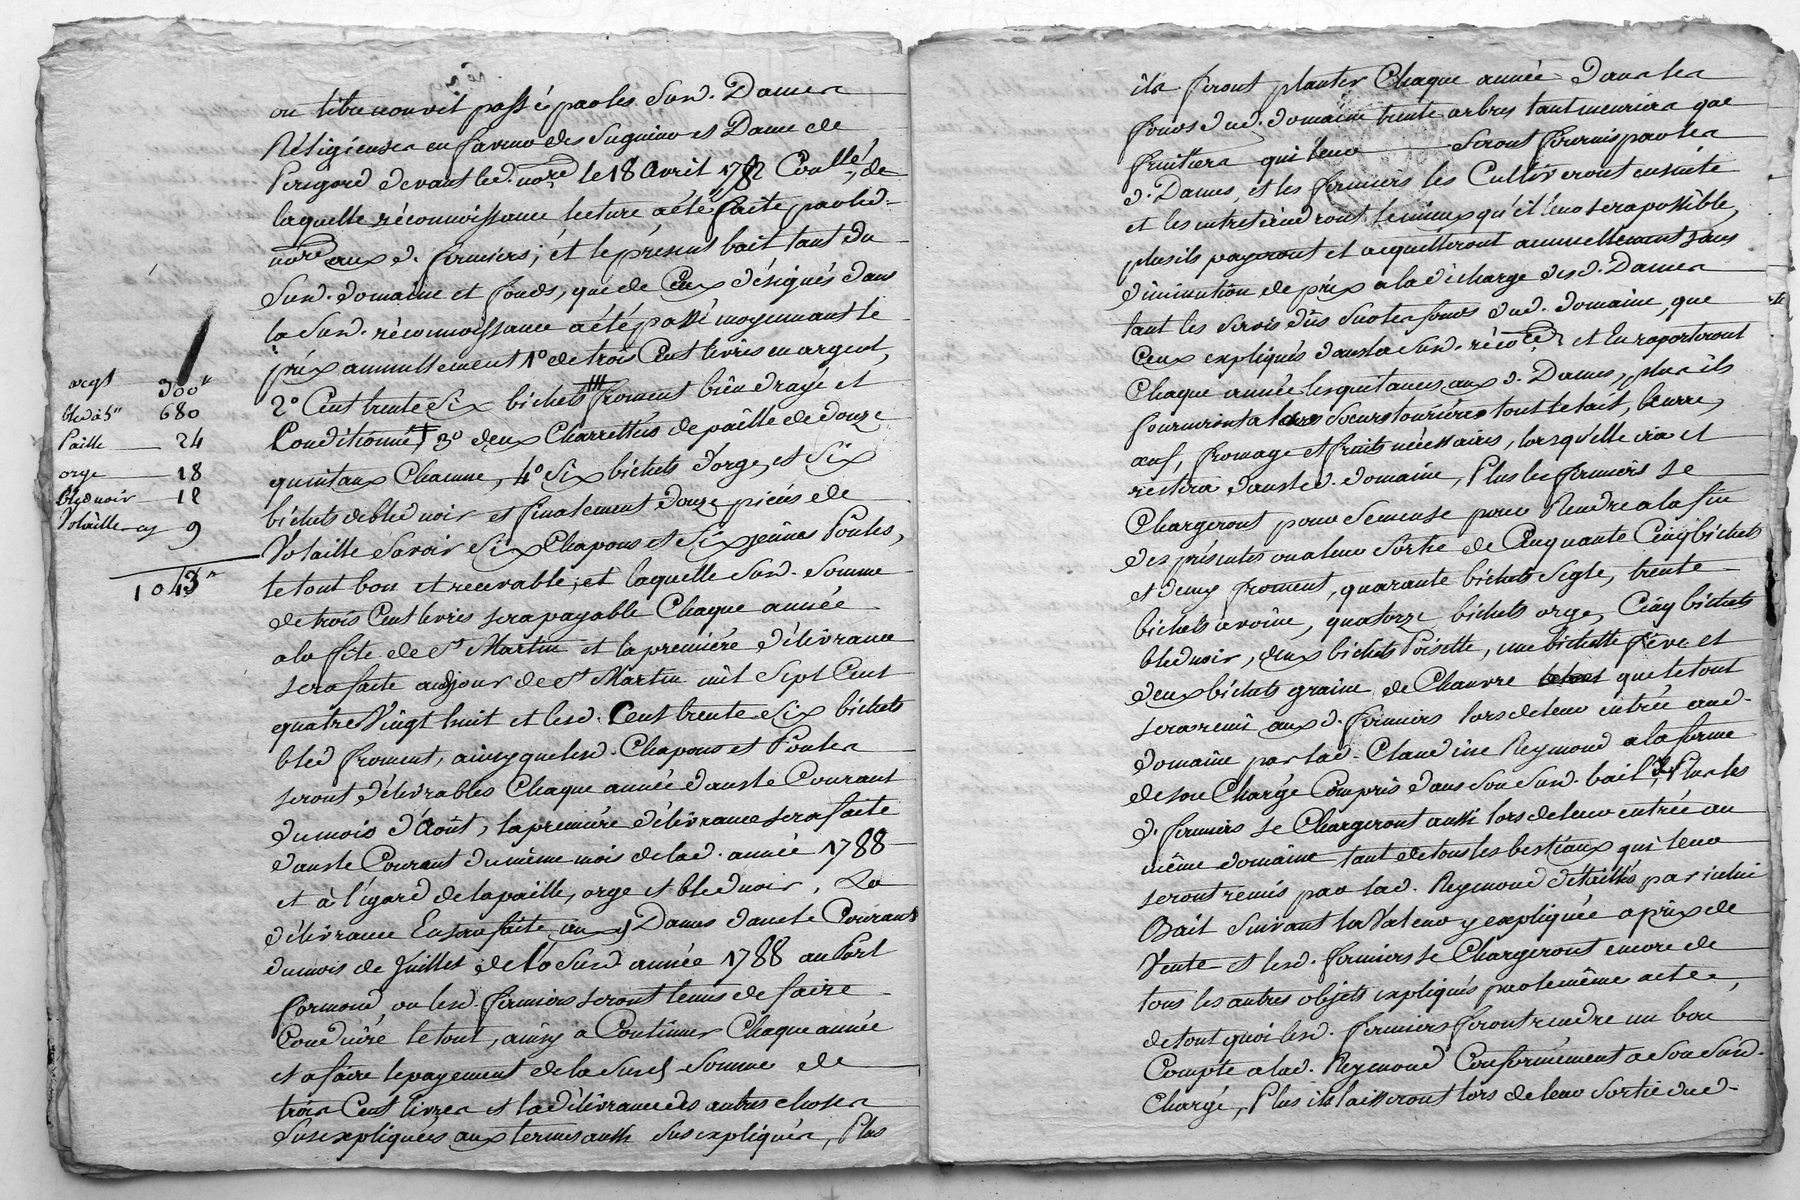 ou titre nouvel passé par les Susd. Dames
Réligieuses en faveur des Seigneur et Dame de
Perigord devant led. nore. le 18 avril 1782 Conllé, de
laquelle réconnoissance lecture a été faite par led.
nore aux d. fermiers; et le présent bail tant du
Susd. domaine et fonds, que de Ceux désignés dans
la Susd. réconnoissance a été passé moyennant le
prix annuellement 1º de trois Cent livres en argent,
2º Cent trente Six bichets froment bien drayé et
Conditionné, 3º deux Charrettées de paille de douze
quintaux Chacune, 4º Six bichets d'orge, et Six
bichets de bled noir et finalement douze pièces de
Volaille Savoir Six Chapons et Six jeunes Poules,
le tout bon et recevable, et laquelle Susd. Somme
de trois Cent livres sera payable Chaque année
a la fête de St Martin et la première délivrance
sera faite au jour de St Martin mil Sept Cent
quatre Vingt huit et lesd. Cent trente Six bichets
bled froment, ainsy que lesd. Chapons et Poules
seront délivrables Chaque année dans le Courant
du mois d'Août, la première délivrance sera faite
dans le Courant du même mois de lad. année 1788
et à l'égard de la paille, orge et bled noir, La
délivrance En sera faite aux d. Dames dans le Courant
du mois de Juillet de la Susd. année 1788 au Port
formond, ou lesd. fermiers seront tenus de faire
Conduire le tout, ainsy a Continuer Chaque année
et a faire le payement de la Susd. Somme de
trois Cent livres et la délivrance des autres choses
Susexpliquées aux termes aussi Susexpliqués, Plus
argt 300"
bled à 5" 680
Paille 24
orge 18
bled noir 12
Volaille 9
1043"
ils feront planter Chaque année dans les
fonds dud. domaine trente arbres tant meuriers que
fruitiers qui leur seront fournis par les
d. Dames, et les fermiers les Cultiveront ensuite
et les entretiendront le mieux qu'il leur sera possible,
plus ils payeront et acquitteront annuellement sans
diminution de prix a la décharge desd. Dames
tant les Servis dûs Sur les fonds dud. domaine, que
Ceux expliqués dans la Susd. réconce. et En raporteront
Chaque année les quitances aux d. Dames, plus ils
fourniront a leurs Soeurs tourières tout le lait, beurre,
oeuf, fromage et fruits nécessaires, lorsqu'elle ira et
restera dans led. domaine, Plus les fermiers se
Chargeront pour Semense pour Rendre a la fin
des présentes ou a leur Sortie de Cinquante Cinq bichets
et demy froment, quarante bichets Segle, trente
bichets avoine, quatorze bichets orge, Cinq bichets
bled noir, deux bichets Poisette, une bichette fève et
deux bichets graine de Chanvre que le tout
sera remis aux d. fermiers lors de leur entrée aud.
domaine par lad. Claudine Reymond a la forme
de son Chargé Compris dans Son Susd. bail, Plus les
d. fermiers se Chargeront aussi lors de leur entrée au
même domaine tant de tous les bestiaux qui leur
seront remis par lad. Reymond détaillés par icelui
Bail Suivant la Valeur y expliquée a prix de
Vente et lesd. fermiers se Chargeront encore de
tous les autres objets expliqués par le même acte,
de tout quoi lesd. fermiers feront rendre un bon
Compte a lad. Reymond Conformément a Son Susd.
Chargé, Plus ils laisseront lors de leur Sortie dud.